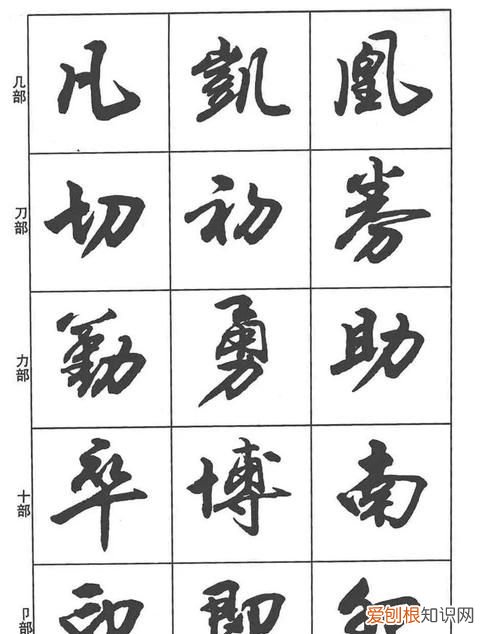 几部 凡 凱 凰
刀部 切 初 券
力部 勤 勇 助
十部 卒 博 南
卩部 印 即 卸
爱刨根知识网